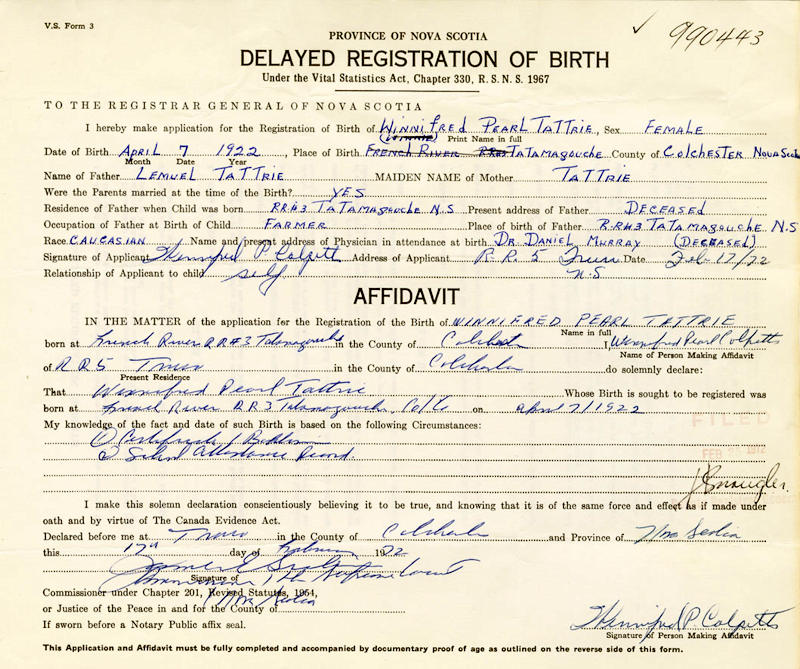 V.S. Form 3
✓ 990443
PROVINCE OF NOVA SCOTIA
DELAYED REGISTRATION OF BIRTH
Under the Vital Statistics Act, Chapter 330, R.S.N.S. 1967
TO THE REGISTRAR GENERAL OF NOVA SCOTIA
I hereby make application for the Registration of Birth of WINNIFRED PEARL TATTRIE, Sex FEMALE
(WINNIE) Print Name in full
Date of Birth APRIL 7 1922, Place of Birth FRENCH RIVER RR#3 TATAMAGOUCHE County of COLCHESTER NOVA SCOTIA
Month Date Year
Name of Father LEMUEL TATTRIE MAIDEN NAME of Mother TATTRIE
Were the Parents married at the time of the Birth? YES
Residence of Father when Child was born RR#3 TATAMAGOUCHE N.S Present address of Father DECEASED
Occupation of Father at Birth of Child FARMER Place of birth of Father R.R#3 TATAMAGOUCHE N.S
Race CAUCASIAN Name and present address of Physician in attendance at birth DR. DANIEL MURRAY (DECEASED)
Signature of Applicant Winnifred P. Colpitts Address of Applicant R.R. 5 Truro Date Feb 17/72
Relationship of Applicant to child self N.S.
AFFIDAVIT
IN THE MATTER of the application for the Registration of the Birth of WINNIFRED PEARL TATTRIE
Name in full
born at French River RR#3 Tatamagouche in the County of Colchester I, Winnifred Pearl Colpitts
Name of Person Making Affidavit
of RR5 Truro in the County of Colchester do solemnly declare:
Present Residence
That Winnifred Pearl Tattrie Whose Birth is sought to be registered was
born at French River RR3 Tatamagouche, Col Co on April 7/1922
My knowledge of the fact and date of such Birth is based on the following Circumstances:
FILED
① Certificate of Baptism
FEB
② School Attendance Record.
I make this solemn declaration conscientiously believing it to be true, and knowing that it is of the same force and effect as if made under
oath and by virtue of The Canada Evidence Act.
Declared before me at Truro in the County of Colchester and Province of Nova Scotia
this 17th day of February 1972
Signature of
Commissioner under Chapter 201, Revised Statutes, 1954,
Nova Scotia
or Justice of the Peace in and for the County of
If sworn before a Notary Public affix seal.
Winnifred P. Colpitts
Signature of Person Making Affidavit
This Application and Affidavit must be fully completed and accompanied by documentary proof of age as outlined on the reverse side of this form.